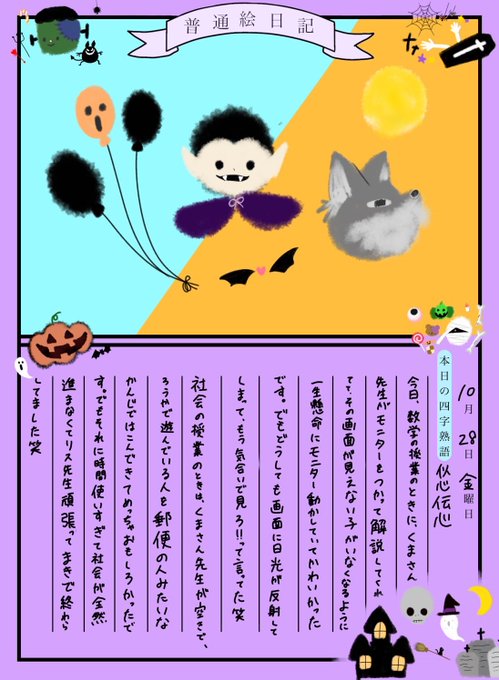 普通絵日記
10月28日金曜日
本日の四字熟語 似心伝心
今日、数学の授業のときに、くまさん
先生がモニターをつかって解説してくれ
てて、その画面が見えない子がいなくなるように
一生懸命にモニター動かしていてかわいかった
です。でもどうしても画面に日光が反射して
しまって、もう気合いで見ろ!!って言ってた笑
社会の授業のときは、くまさん先生が空き で、
ろうやで遊んでいる人を郵便の人みたいな
かんじではこんできてめっちゃおもしろかったで
す。でもそれに時間使いすぎて社会が全然
進まなくてリス先生頑張ってまきで終わら
してました笑